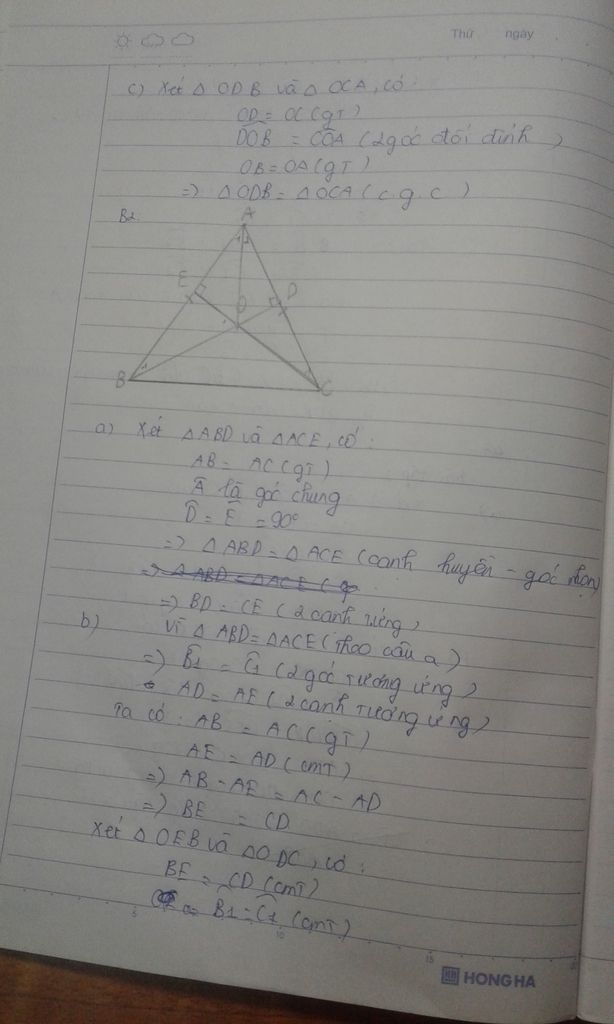 Thứ ngày
c) Xét △ ODB và △ OCA, có:
OD = OC (gT)
DOB = COA (2 góc đối đỉnh)
OB = OA (gT)
=> △ ODB = △ OCA (c.g.c)
B2.
A
E
D
O
B
C
a) Xét △ ABD và △ ACE, có:
AB = AC (gT)
Â là góc chung
D̂ = Ê = 90°
=> △ ABD = △ ACE (cạnh huyền - góc nhọn)
=> △ ABD = △ ACE (g
=> BD = CE (2 cạnh ứng)
b) Vì △ ABD = △ ACE (theo câu a)
=> B̂1 = Ĉ1 (2 góc tương ứng)
AD = AE (2 cạnh tương ứng)
Ta có: AB = AC (gT)
AE = AD (cmT)
=> AB - AE = AC - AD
=> BE = CD
Xét △ OEB và △ ODC, có:
BE = CD (cmT)
B̂1 = Ĉ1 (cmT)
5 10 15
HH HONG HA